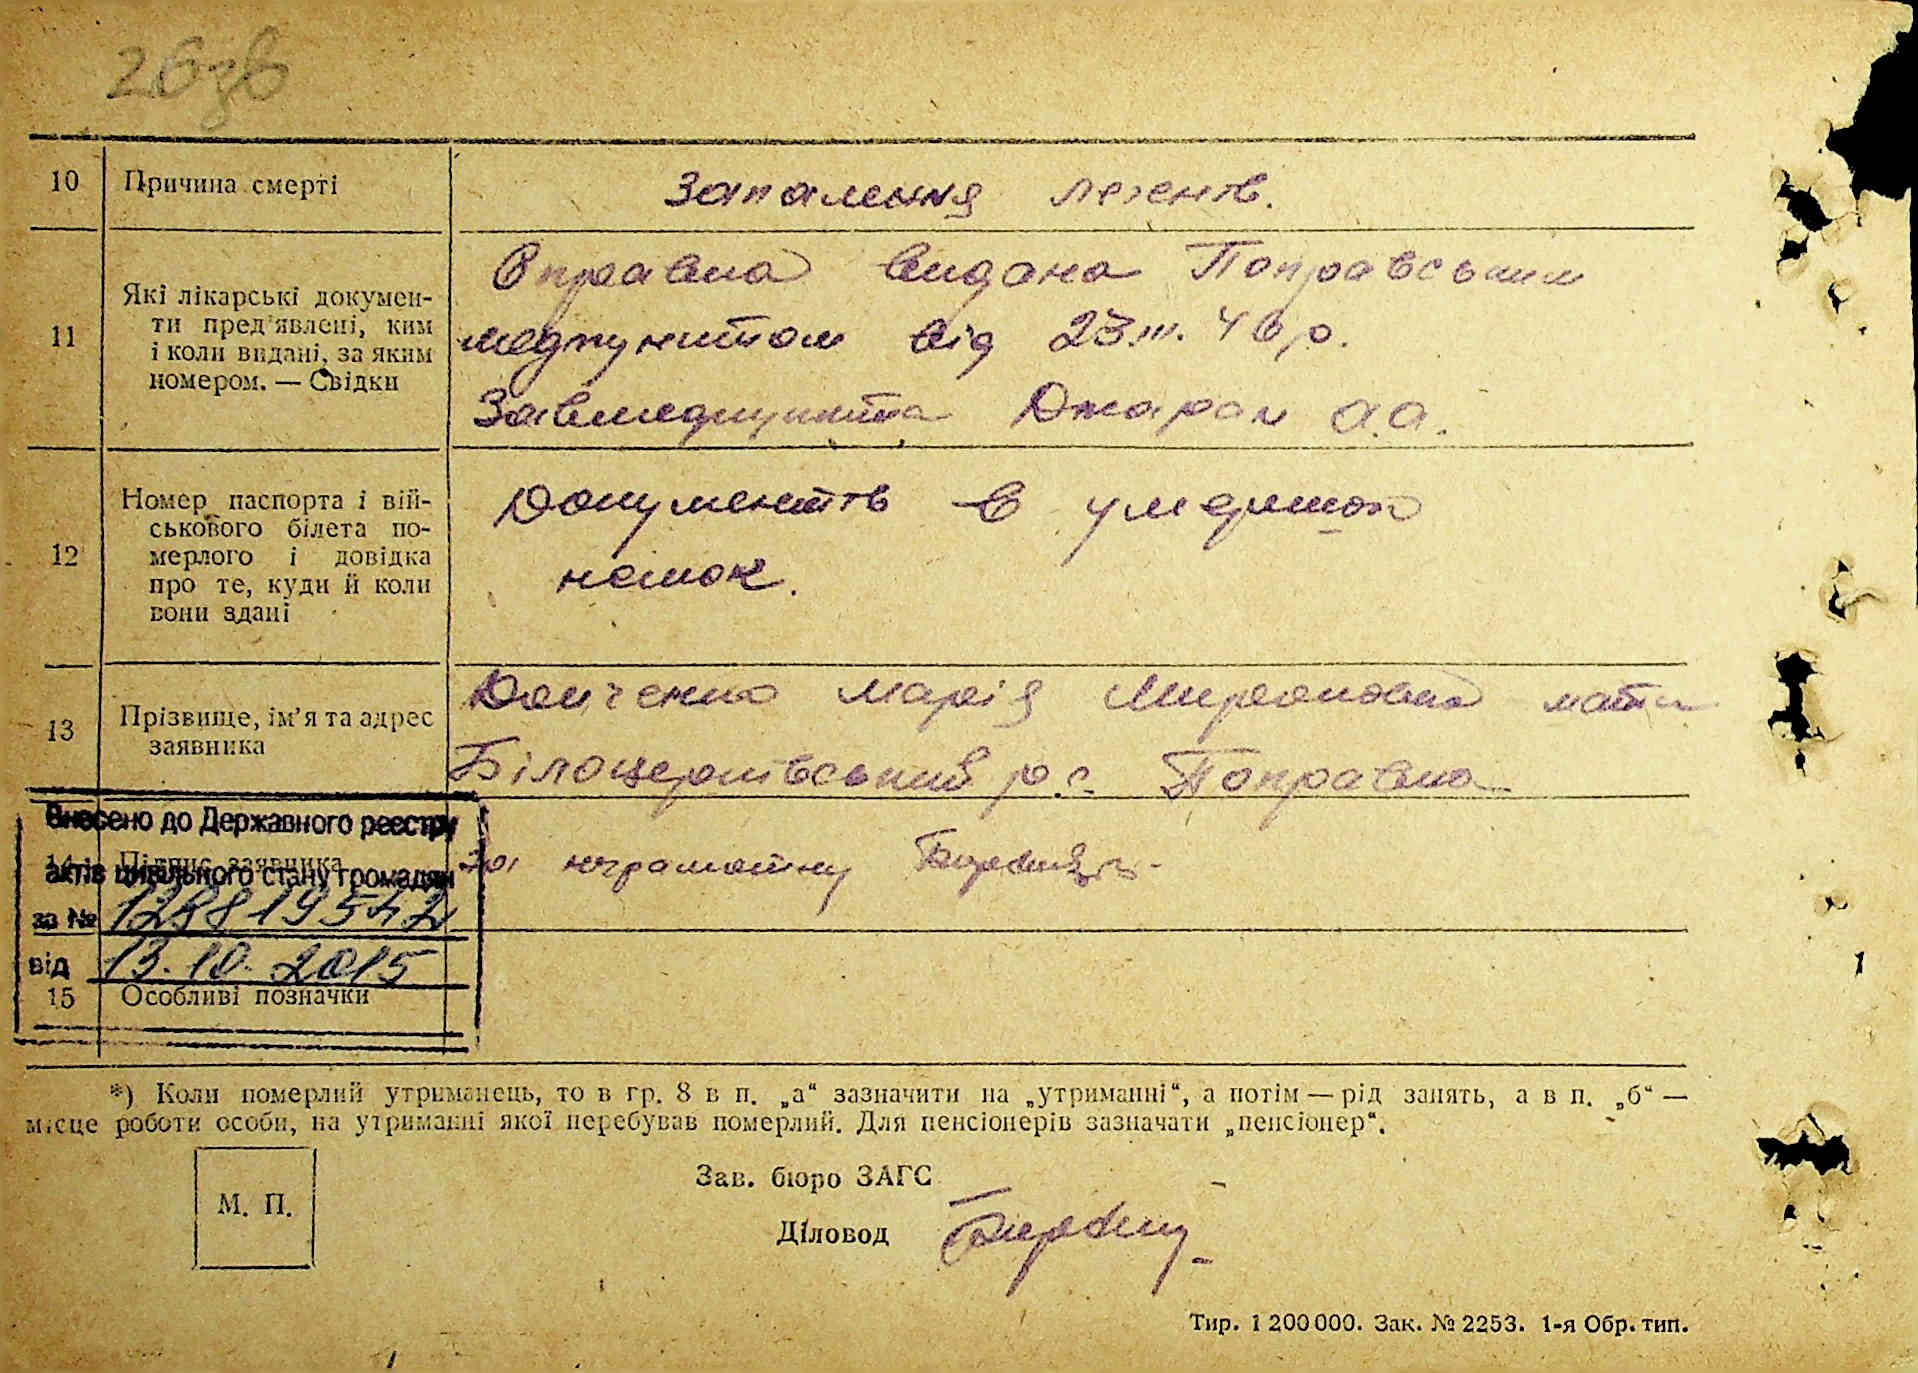 10 Причина смерті
Запалення легенів.
11 Які лікарські докумен-
ти пред'явлені, ким
і коли видані, за яким
номером. — Свідки
Справка видана Поправським
медпунктом від 23.III.46р.
Завмедпункта Джаран А.А.
12 Номер паспорта і вій-
ськового білета по-
мерлого і довідка
про те, куди й коли
вони здані
Документів в умершого
немає.
13 Прізвище, ім'я та адрес
заявника
Марія Мироновна мати
Білоцерківський р. с. Поправка
Внесено до Державного реєстру
14 Підпис заявника
актів цивільного стану громадян
За неграмотну
за № 12881954 2
від 13.10.2015
15 Особливі позначки
*) Коли померлий утриманець, то в гр. 8 в п. „а“ зазначити на „утриманні“, а потім — рід занять, а в п. „б“ —
місце роботи особи, на утриманні якої перебував померлий. Для пенсіонерів зазначати „пенсіонер“.
М. П.
Зав. бюро ЗАГС
Діловод
Тир. 1 200 000. Зак. № 2253. 1-я Обр. тип.